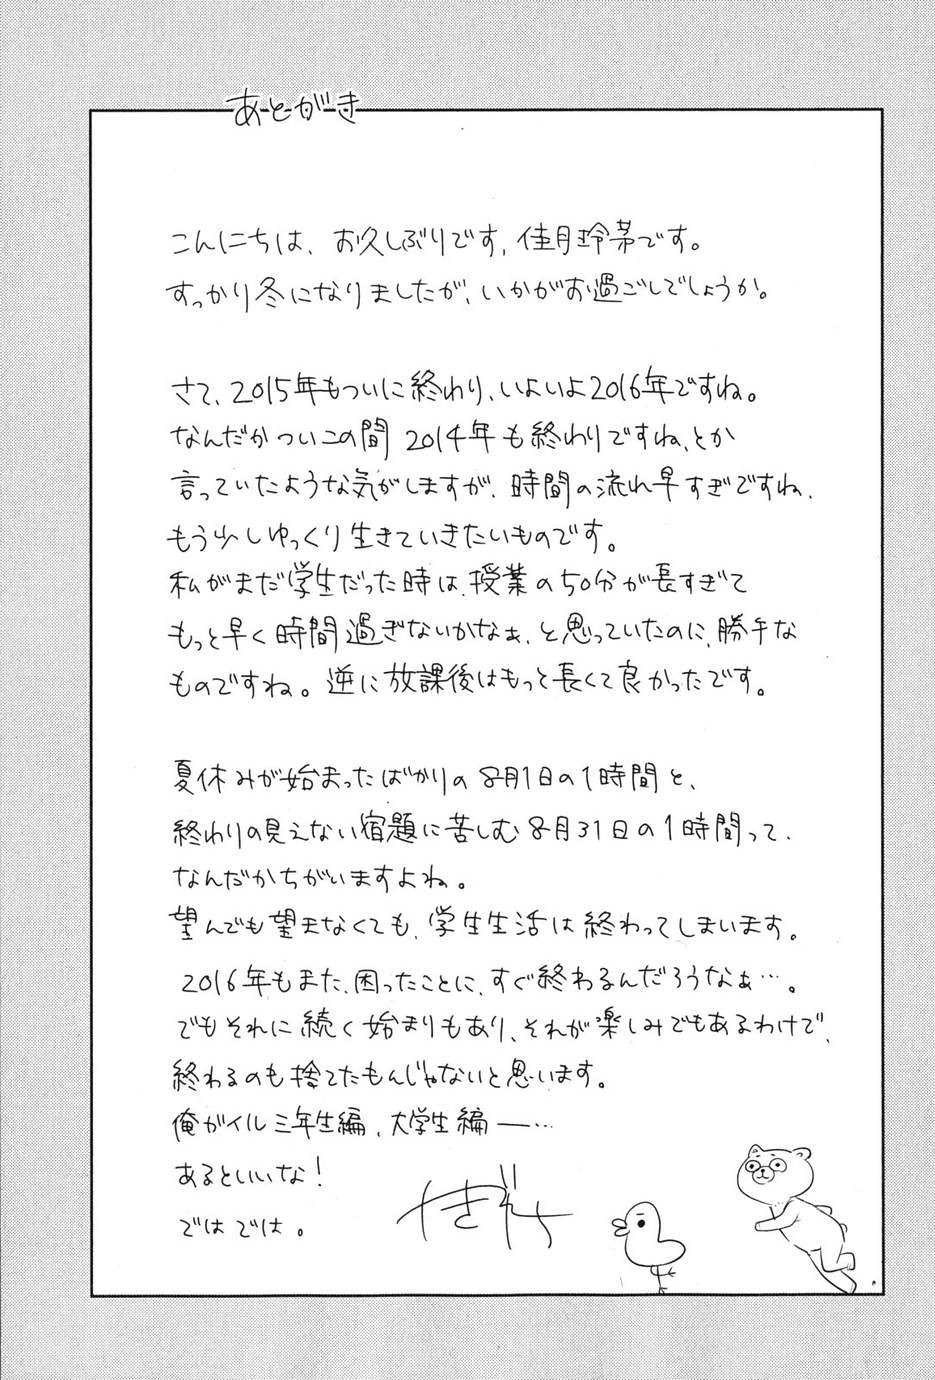 あとがき
こんにちは、お久しぶりです、佳月玲茅です。
すっかり冬になりましたが、いかがお過ごしでしょうか。
さて、2015年もついに終わり、いよいよ2016年ですね。
なんだかついこの間 2014年も終わりですね、とか
言っていたような気がしますが、時間の流れ早すぎですね、
もう少しゆっくり生きていきたいものです。
私がまだ学生だった時は、授業の50分が長すぎて
もっと早く時間過ぎないかなぁ、と思っていたのに、勝手な
ものですね。逆に放課後はもっと長くて良かったです。
夏休みが始まったばかりの8月1日の1時間と、
終わりの見えない宿題に苦しむ8月31日の1時間って、
なんだかちがいますよね。
望んでも望まなくても、学生生活は終わってしまいます。
2016年もまた、困ったことに、すぐ終わるんだろうなぁ…。
でもそれに続く始まりもあり、それが楽しみでもあるわけで、
終わるのも捨てたもんじゃないと思います。
俺ガイル三年生編、大学生編ー…
あるといいな！
ではでは。